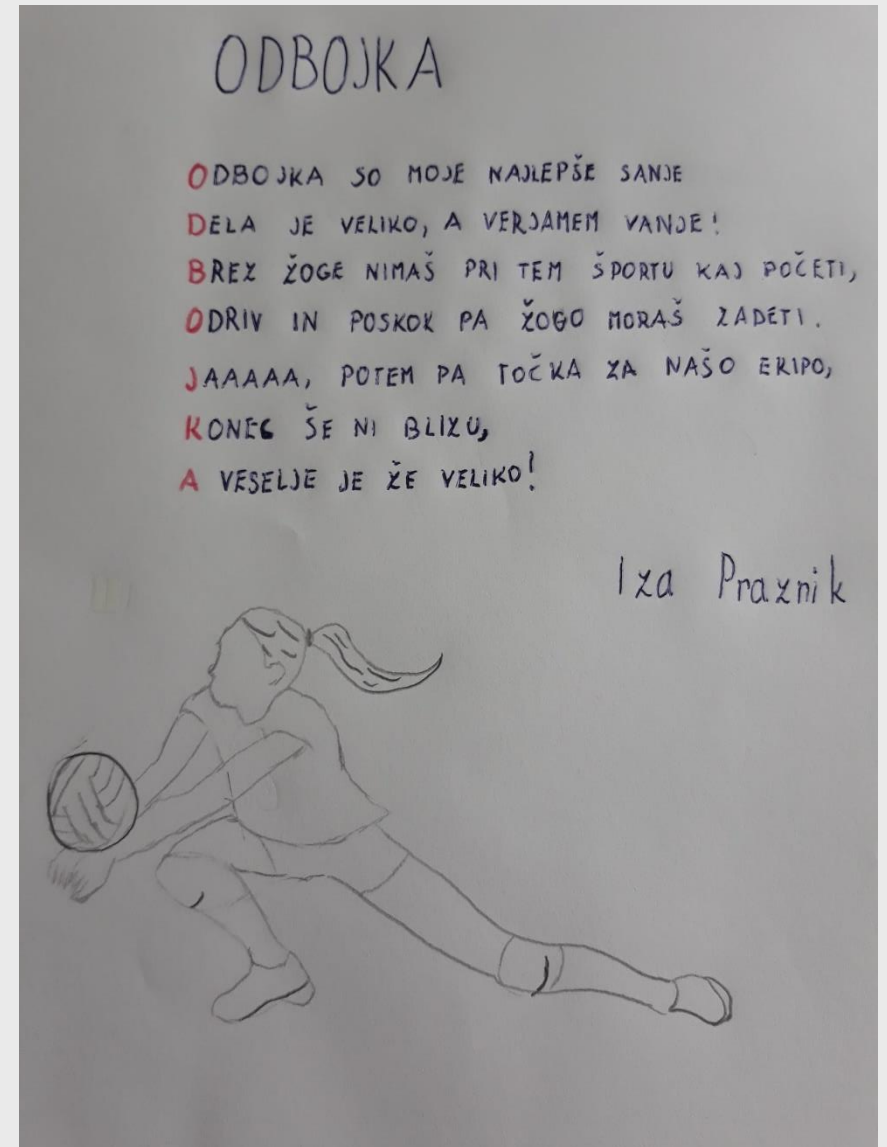 ODBOJKA
ODBOJKA SO MOJE NAJLEPŠE SANJE
DELA JE VELIKO, A VERJAMEM VANJE!
BREZ ŽOGE NIMAŠ PRI TEM ŠPORTU KAJ POČETI,
ODRIV IN POSKOK PA ŽOGO MORAŠ ZADETI.
JAAAAA, POTEM PA TOČKA ZA NAŠO EKIPO,
KONEC ŠE NI BLIZU,
A VESELJE JE ŽE VELIKO!
Iza Praznik